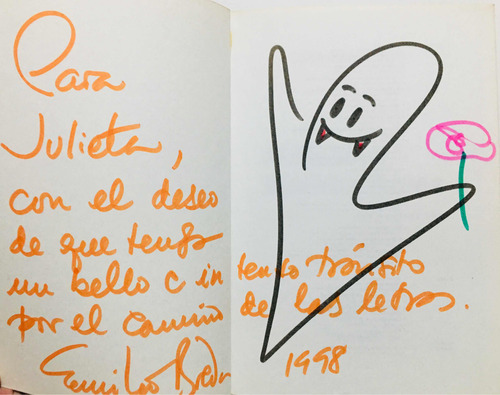 Para
Julieta,
con el deseo
de que tenga
un bello e intenso tránsito
por el camino de las letras.
Emilio Breda
1998